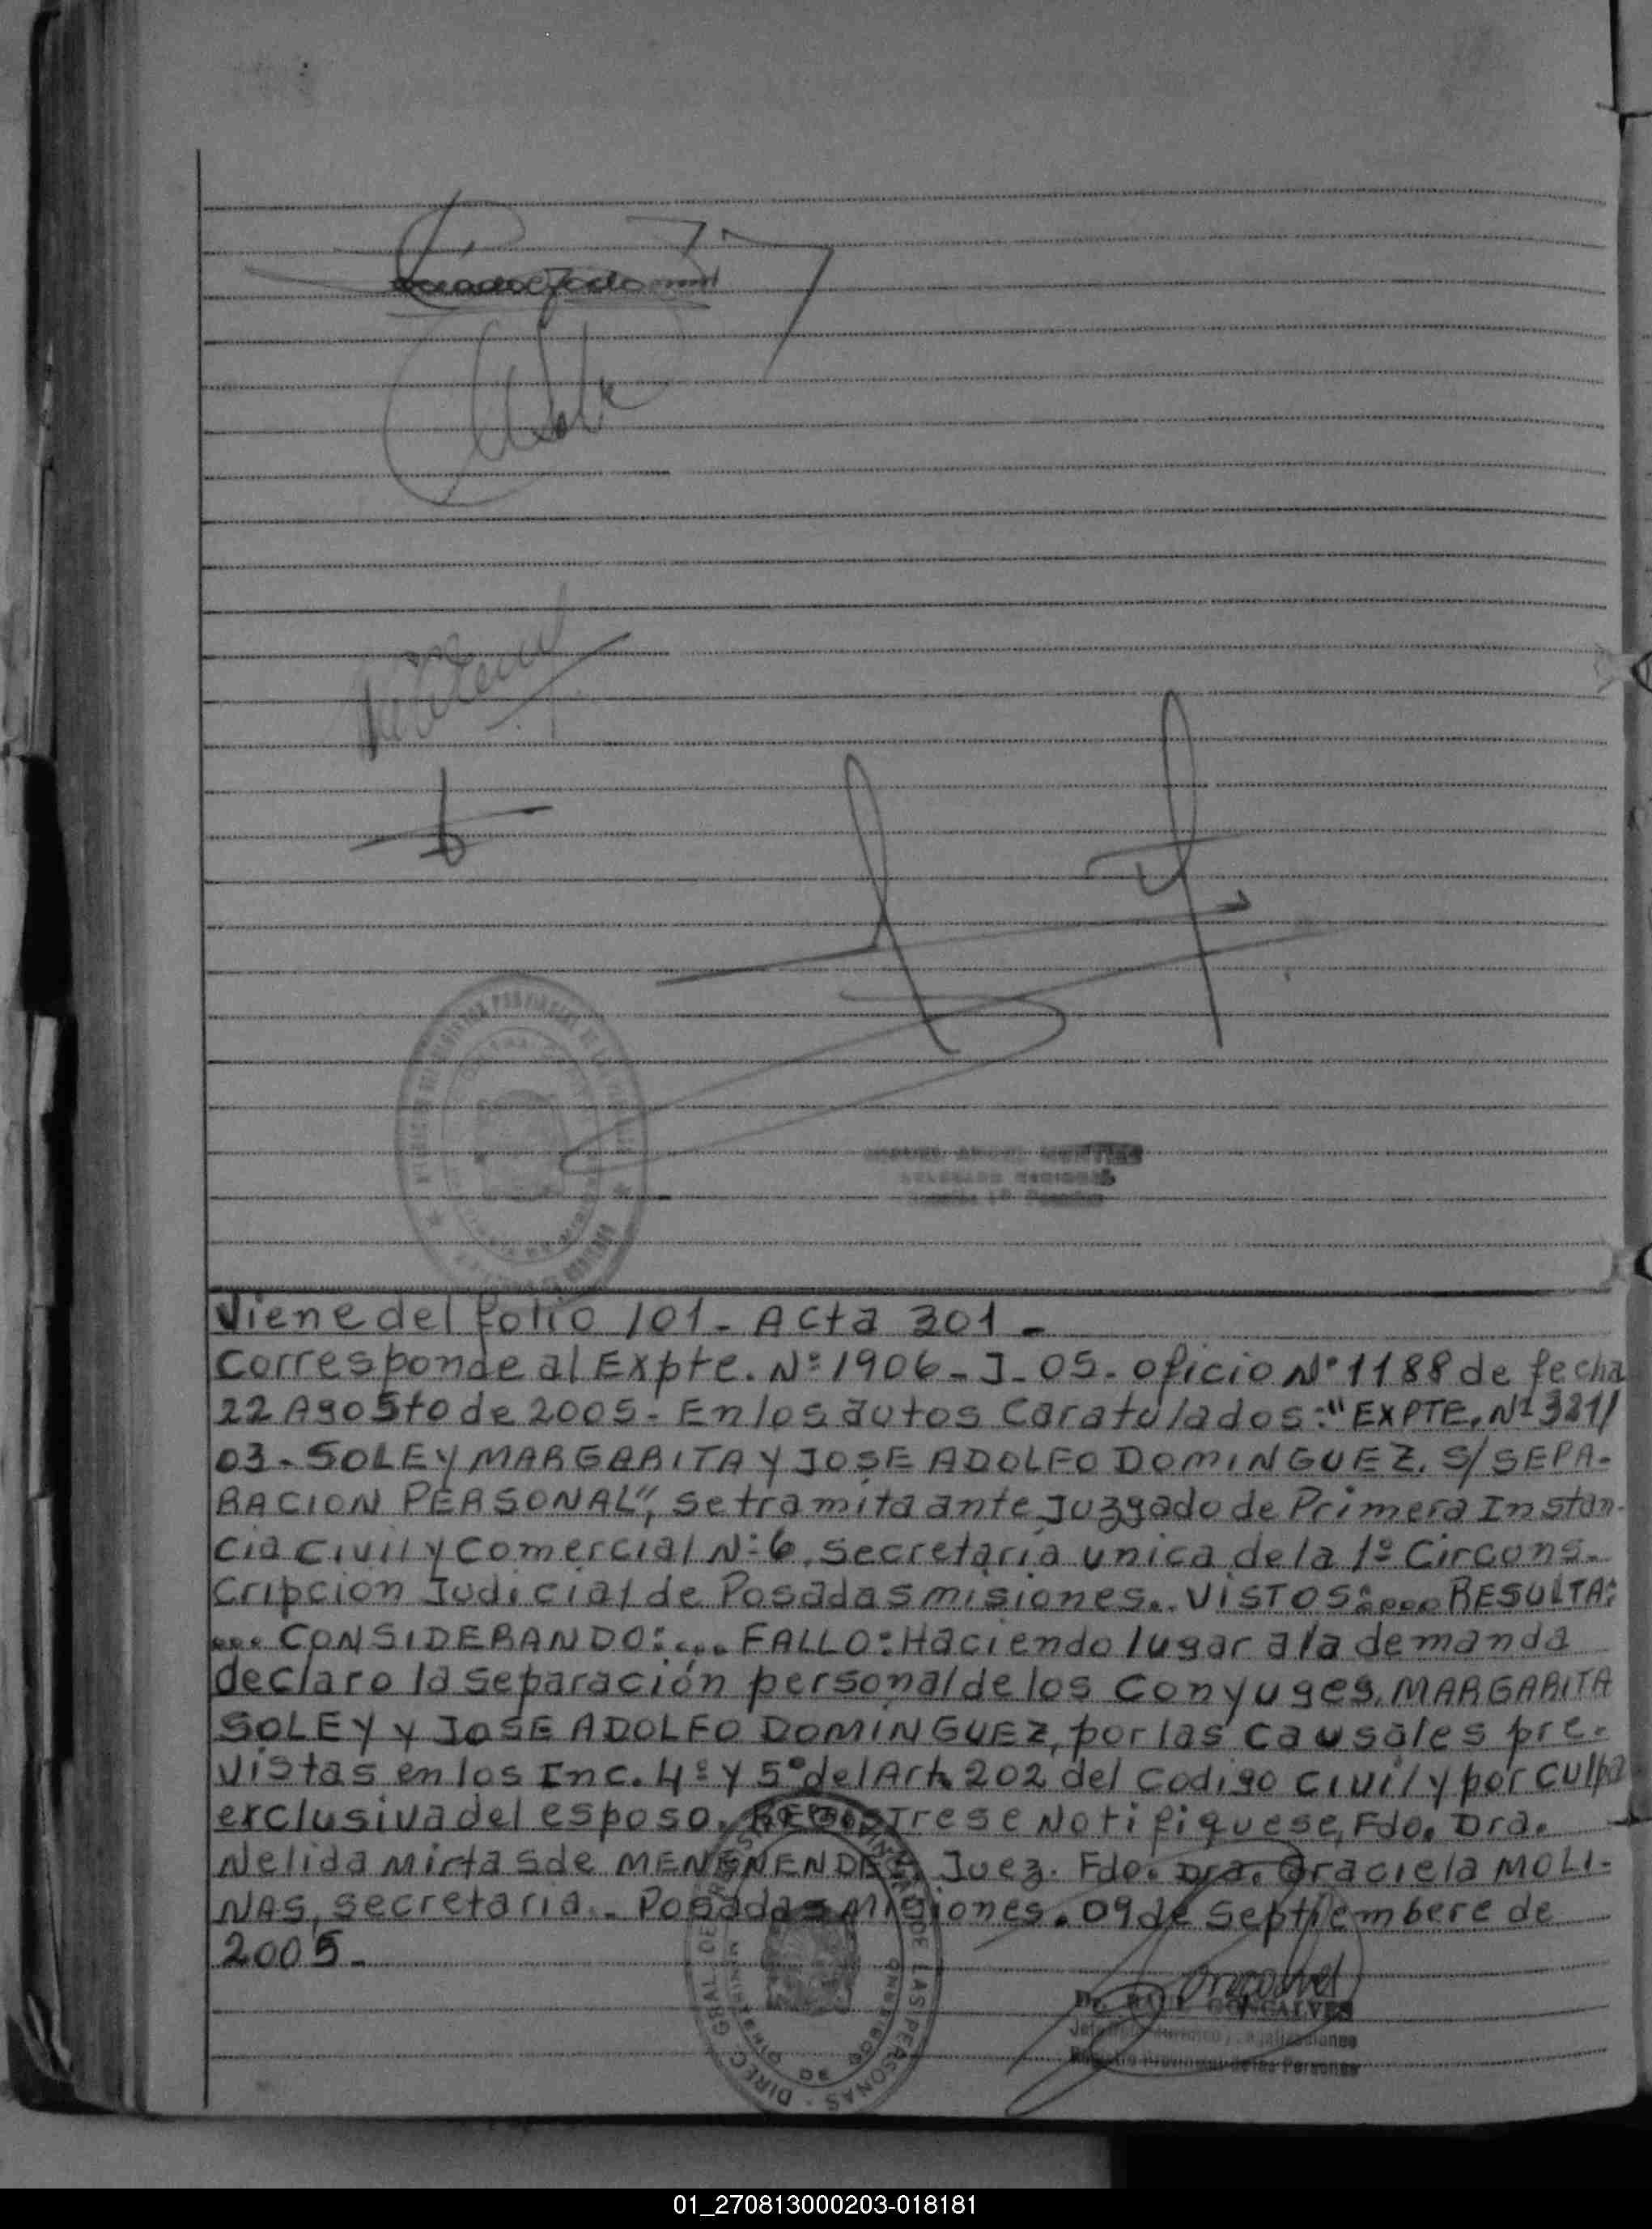 Viene del folio 101 - Acta 301 -
Corresponde al Expte. Nº 1906 - J - 05. oficio Nº 1188 de fecha
22 Agosto de 2005. En los autos Caratulados: "EXPTE. Nº 381/
03 - SOLEY MARGARITA Y JOSE ADOLFO DOMINGUEZ. S/ SEPA-
RACION PERSONAL", se tramita ante Juzgado de Primera Instan-
cia Civil y Comercial Nº 6, secretaria unica de la 1º Circons-
cripcion Judicial de Posadas misiones.. VISTOS:.... RESULTA:
... CONSIDERANDO:.... FALLO: Haciendo lugar a la demanda
declaro la separación personal de los Conyuges. MARGARITA
SOLEY y JOSE ADOLFO DOMINGUEZ, por las causales pre-
vistas en los Inc. 4º y 5º del Art. 202 del Codigo Civil y por culpa
exclusiva del esposo. REGISTRESE Notifiquese, Fdo. Dra.
Nelida Mirta s de MENENENDEZ, Juez. Fdo. Dra. Graciela MOLI-
NAS, secretaria. - Posadas Misiones. 09 de Septiembere de
2005 -
DIREC. GRAL. DE REGISTRO PROVINCIAL DE LAS PERSONAS
Dr. RAUL GONCALVES
Registro Provincial de las Personas
01_270813000203-018181